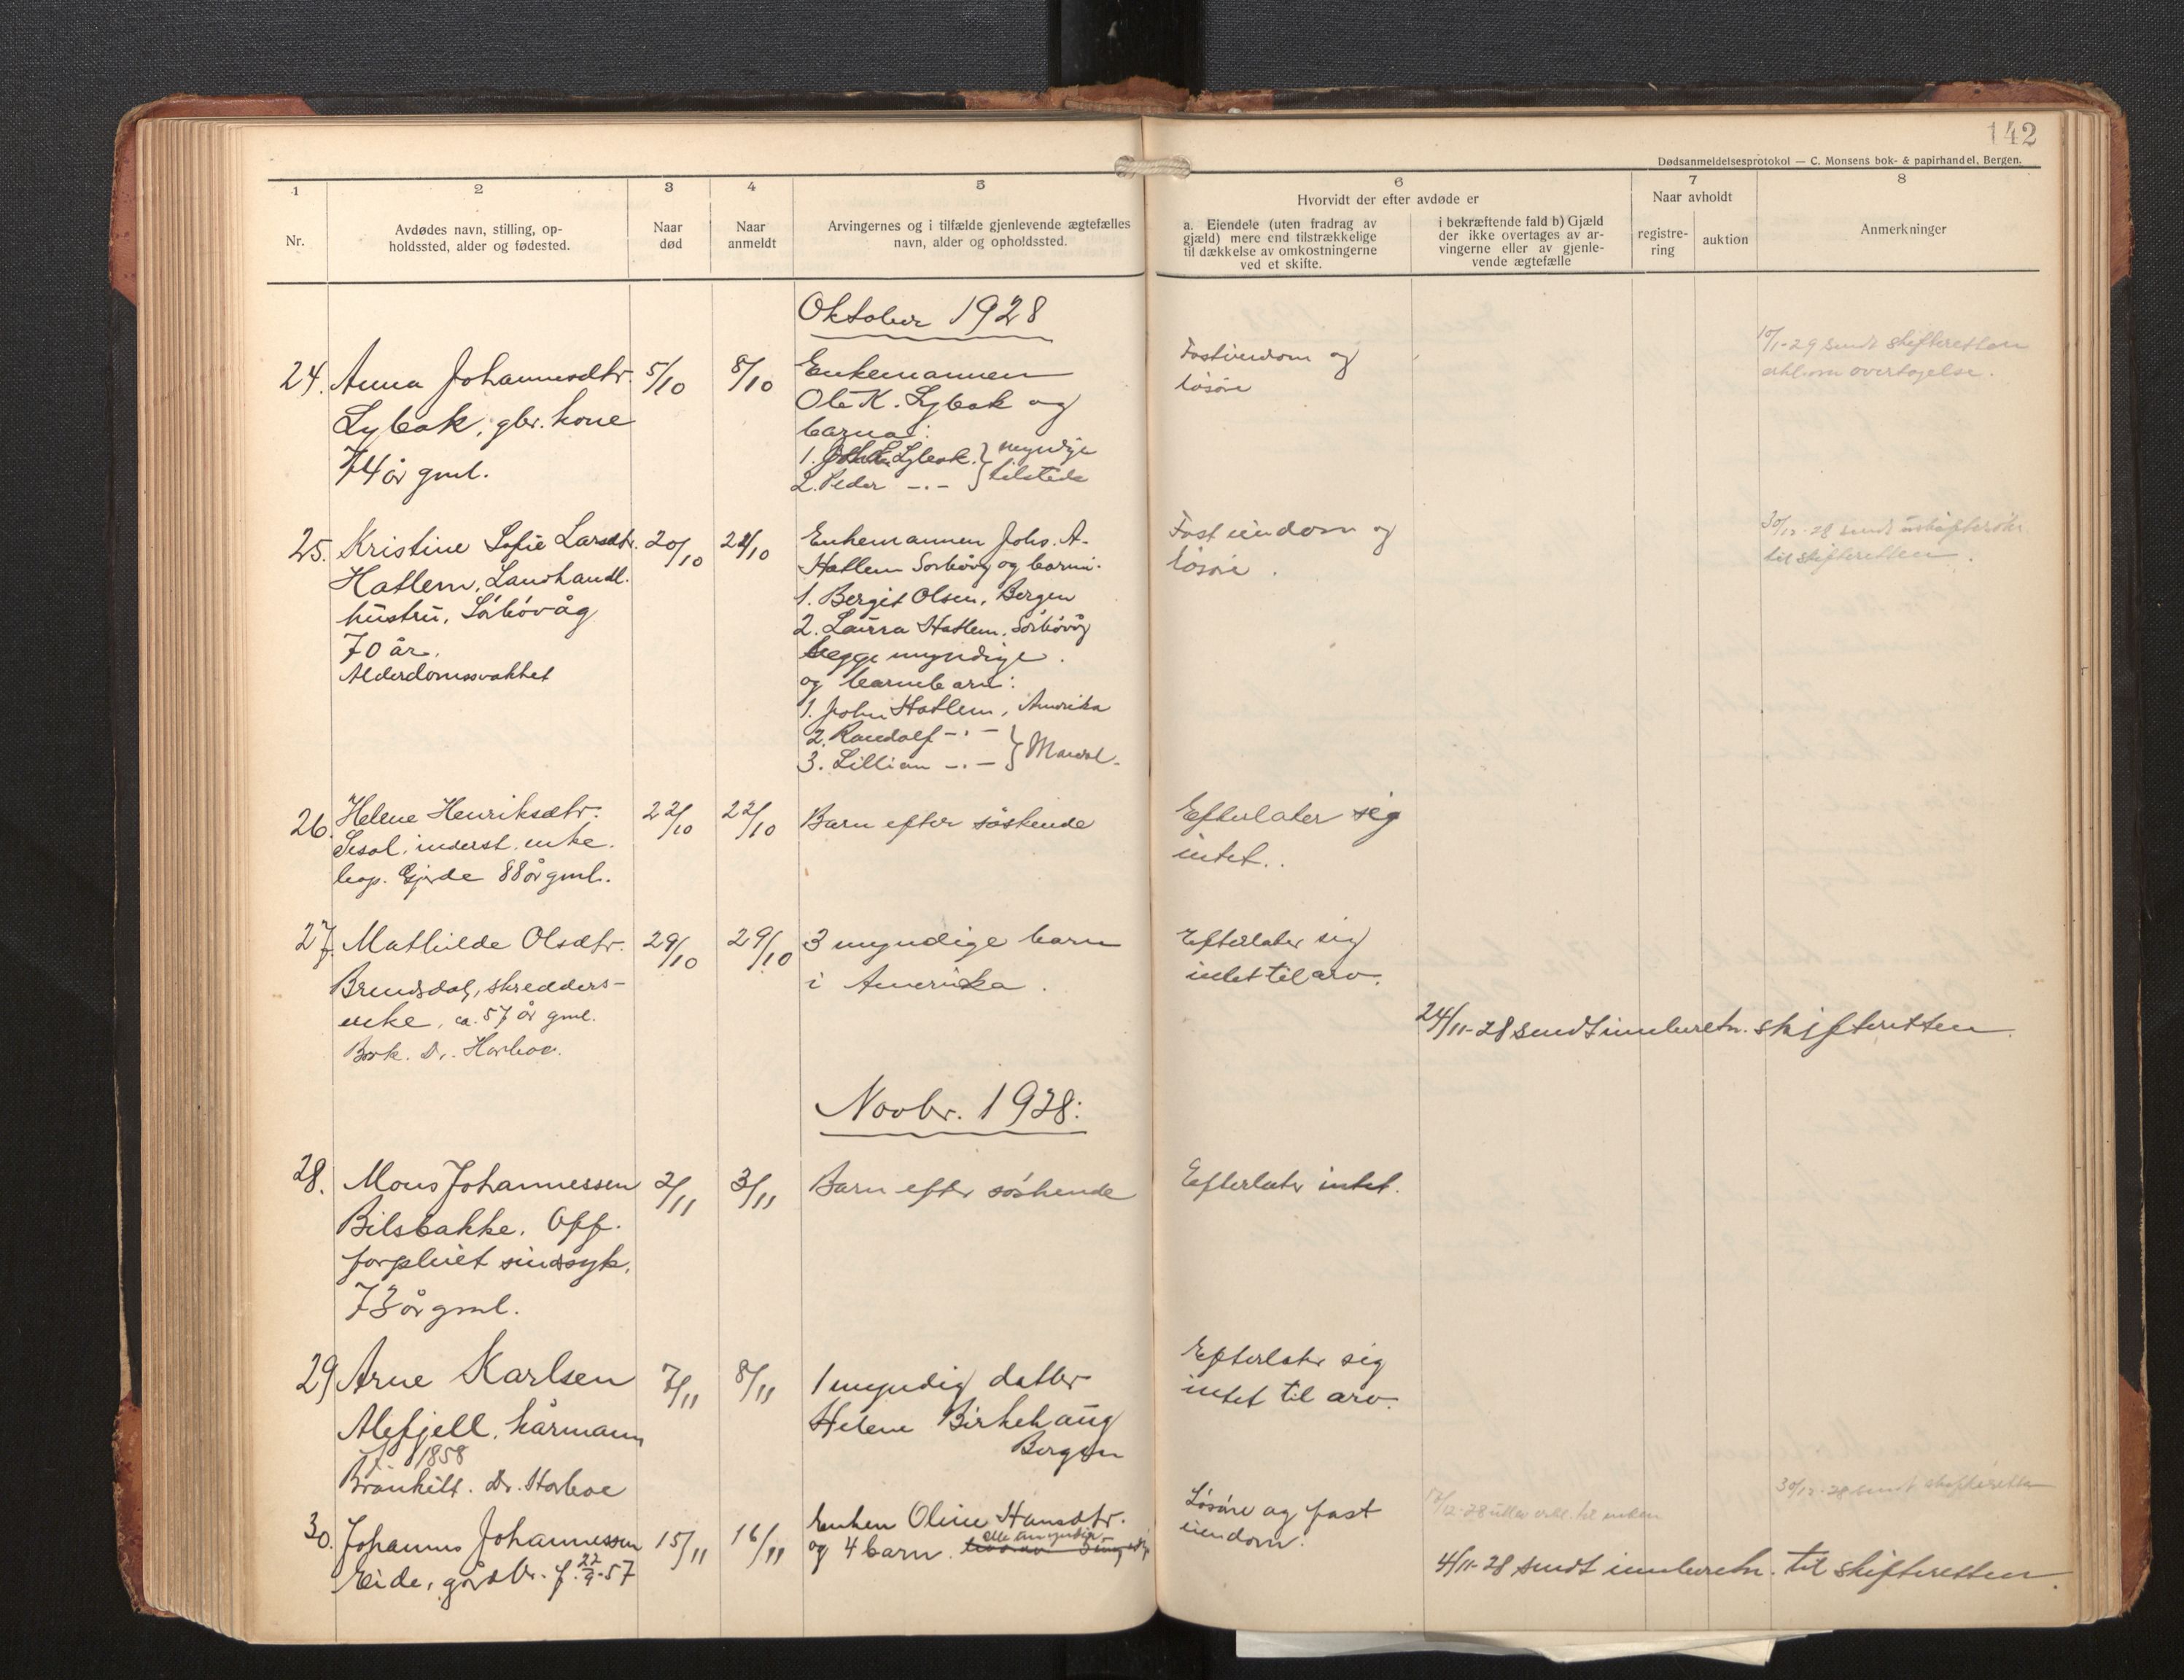 142
Dødsanmeldelsesprotokol — C. Monsens bok- & papirhandel, Bergen.
1
2
3
4
5
6
7
8
Nr.
Avdødes navn, stilling, op-
holdssted, alder og fødested.
Naar
død
Naar
anmeldt
Arvingernes og i tilfælde gjenlevende ægtefælles
navn, alder og opholdssted.
Hvorvidt der efter avdøde er
a. Eiendele (uten fradrag av
gjæld) mere end tilstrækkelige
til dækkelse av omkostningerne
ved et skifte.
i bekræftende fald b) Gjæld
der ikke overtages av ar-
vingerne eller av gjenle-
vende ægtefælle
Naar avholdt
registre-
ring
auktion
Anmerkninger
Oktober 1928
24. Anna Johannesdtr.
Lybak, gbr. kone
74 år gml.
5/10
8/10
Enkemannen
Ole K. Lybak og
barna:
1. Lybak } myndige
2. Peder -.- } tilstede
Fasteiendom og
løsøre
10/1-29 sendt skifteretten
overtagelse.
25. Kristine Sofie Larsdtr.
Hatlem, Landhandl.
hustru, Sørbøvåg
70 år.
Alderdomssvakhet
20/10
22/10
Enkemannen Johs. A.
Hatlem Sørbøvåg og barn:
1. Bergit Olsen, Bergen
2. Laura Hatlem, Sørbøvåg
begge myndige.
og barnebarn:
1. John Hatlem, Amerika
2. Randolf -.- }
3. Lillian -.- }
Fast eiendom og
løsøre.
30/12-28 sendt
til skifteretten.
26. Helene Henriksdtr.
inderst. enke.
Gjerde 88 år gml.
22/10
22/10
Barn efter søskende
Efterlater sig
intet.
27. Mathilde Olsdtr.
Brendsdal, skredders-
enke, ca. 57 år gml.
Dr. Harboe.
29/10
29/10
3 myndige barn
i Amerika.
Efterlater sig
intet til arv.
24/11-28 sendt innberetn. skifteretten.
Novbr. 1928:
28. Mons Johannessen
Bilsbakke. Off.
forpleiet sindssyk.
73 år gml.
2/11
3/11
Barn efter søskende
Efterlater intet.
29 Arne Karlsen
Alefjell, kårmann
f. 1858
Dr. Harboe
7/11
8/11
1 myndig datter
Helene Birkehaug
Bergen
Efterlater sig
intet til arv.
30. Johannes Johannessen
Eide, gårdbr. f. 22/9-57
15/11
16/11
Enken Oline Hansdtr.
og 4 barn.
Løsøre og fast
eiendom.
30/12-28 sendt skifteretten
til enken
4/11-28 sendt innberetn. til skifteretten.